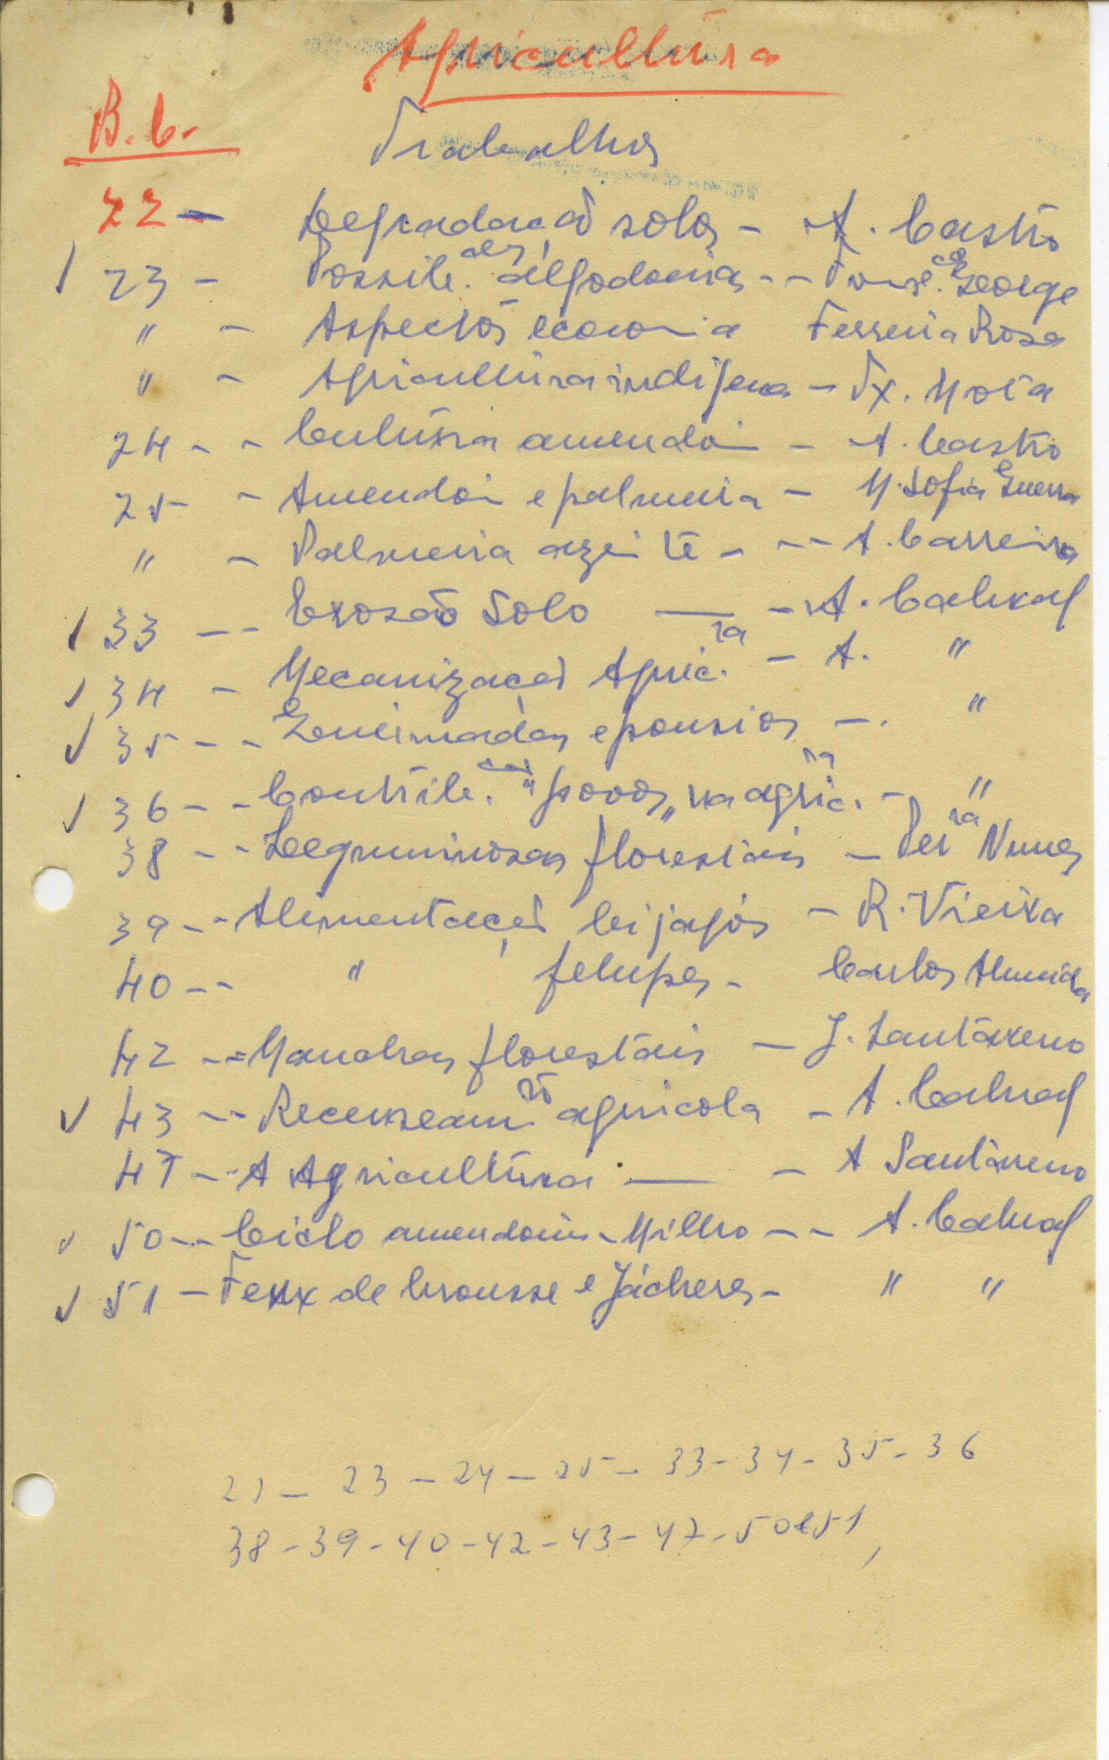 Agricultura
B.C.
Trabalhos
22 - Degradação solos - A. Castro
23 - Possibil.des algodoeiras - - Fonse.ca George
" - Aspectos economia Ferreira Rosa
" - Agricultura indígena - Tx. Mota
24 - - Cultura amendoi - A. Castro
25 - Amendoi e palmeira - M. Sofia Guerra
" - Palmeira azeite - - - A. Carreira
✓ 33 - - Erosão Solo — - A. Cabral
✓ 34 - Mecanização Agríc.ra - A. "
✓ 35 - - Queimadas e pousios - . "
✓ 36 - - Contrib.ção "povos" na agric.ra - "
38 - - Leguminosas florestais - Per.ra Nunes
39 - - Alimentação bijagós - R. Vieira
40 - - " felupes - Carlos Almeida
42 - - Manchas florestais - J. Santareno
✓ 43 - - Recenseam.to agricola - A. Cabral
47 - - A Agricultura — - A Santareno
✓ 50 - - Ciclo amendoim - Milho - - A. Cabral
✓ 51 - Feux de brousse e Jácheres - " "
22 - 23 - 24 - 25 - 33 - 34 - 35 - 36
38 - 39 - 40 - 42 - 43 - 47 - 50 e 51,